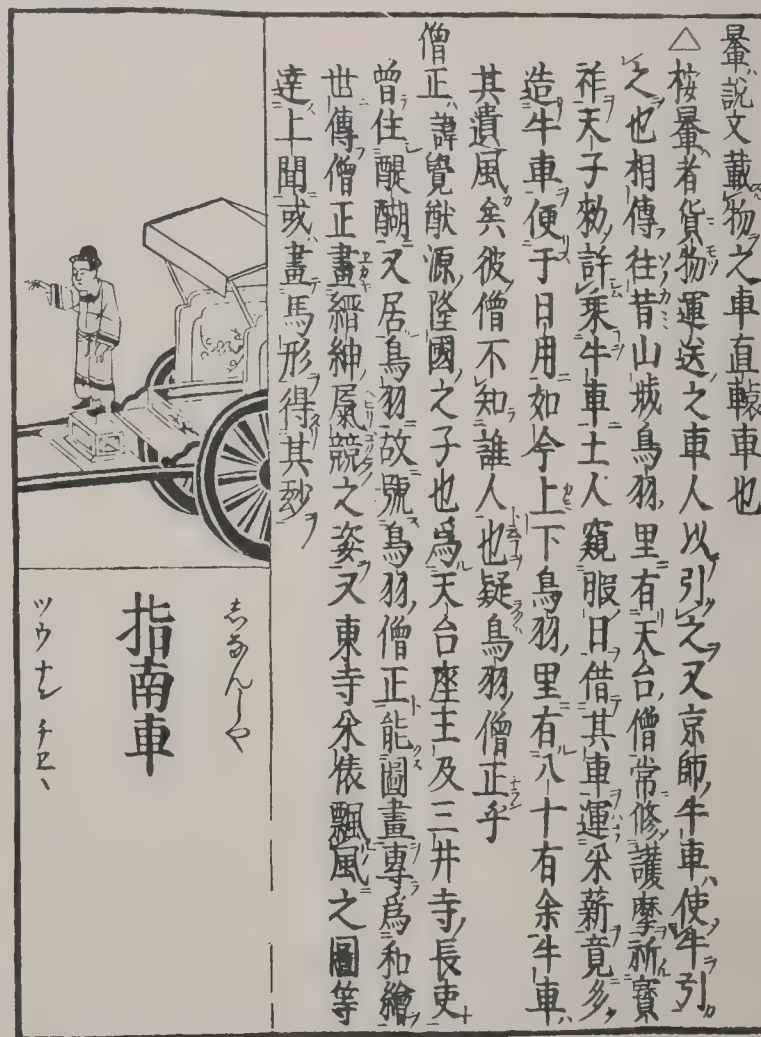 轝ハ說文載物之車直轅車也
△桉轝者貨物運送之車人以引之又京師牛車ハ使牛引
之也相傳往昔山城鳥羽里有天台僧常修護摩祈寳
祚天子勅許乘牛車土人窺暇日借其車運米薪竟多
造牛車便于日用如今上下鳥羽里有八十有余牛車
其遺風矣彼僧不知誰人也疑鳥羽僧正乎
僧正ハ諱覺猷源隆國之子也爲天台座主及三井寺長吏
曾住醍醐又居鳥羽故號鳥羽僧正能圖畫專爲和繪
世傳僧正畫縉紳屓競之姿又東寺米俵飄風之圖等
達上聞或畫馬形得其玅
しなんしや
指南車
ツウナレ チエヽ